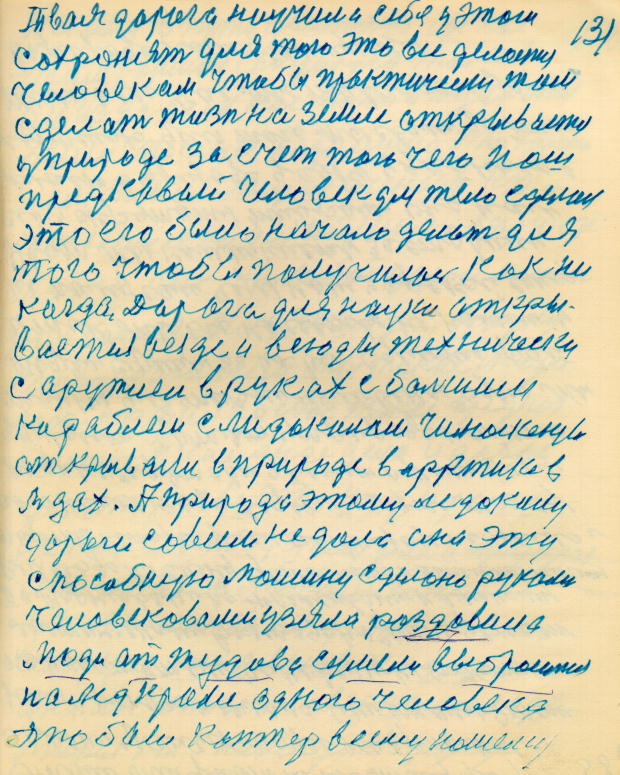 Твая дорога научила себя у этом
131
сохронят для того это все делоты
человекам чтобы практически там
сделат жизн на земле открывается
у природе за счет того чего наш
предковый человек дм тело сделан
это его было начало делат для
того чтобы получилас как ни
когда, Дорога для науки откры-
вается везде и всюды технически
с аружием в руках с балшим
кораблем с ледаколам Чилюскенцы
открывали в природе в арктике в
лдах. А природа этому ледоколу
дороги совсем не дала она эту
способную мошину сделоно руками
человековами узяла роздовила
Люди от жудова сумели выброться
на лед Крали одного человека
это был контер всему нашему